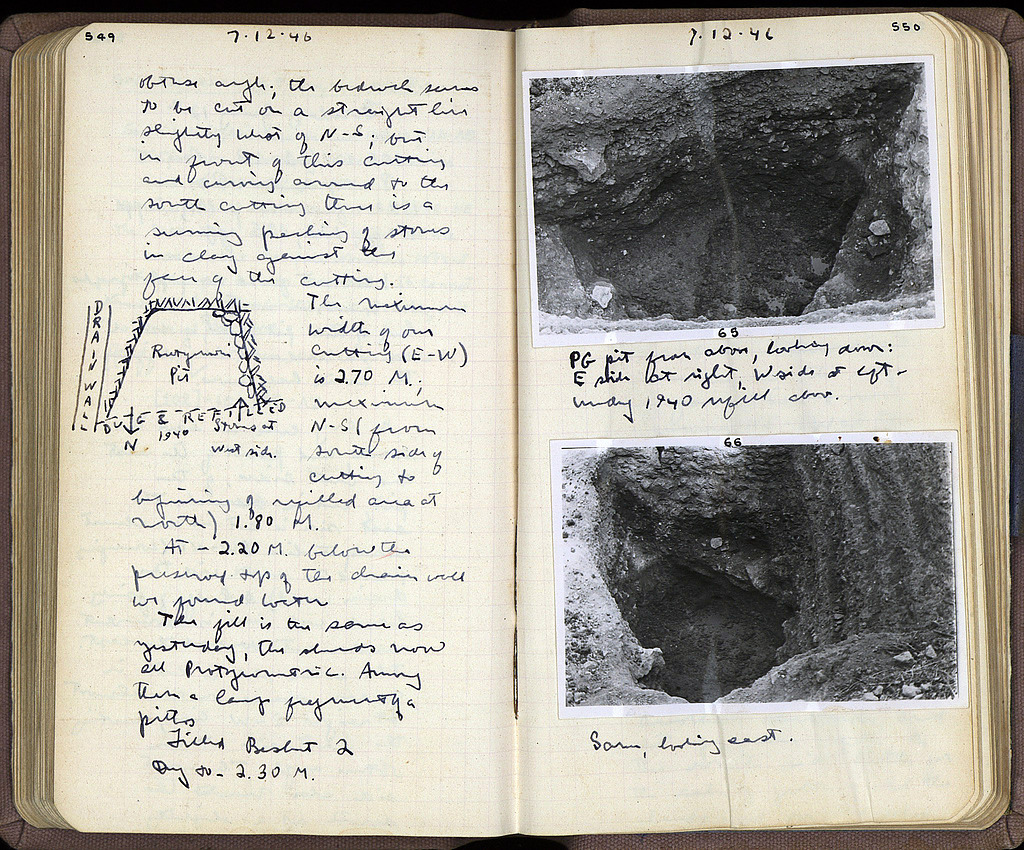 549
7.12.46
obtuse angle; the bedrock seems
to be cut on a straight line
slightly west of N-S; but
in front of this cutting
and curving around to the
south cutting there is a
seeming packing of stones
in clay against the
face of the cutting.
The maximum
width of our
cutting (E-W)
is 2.70 M.;
maximum
N-S (from
south side of
cutting to
beginning of refilled area at
north) 1.80 M.
At - 2.20 M. below the
preserved top of the drain wall
we found water
The fill is the same as
yesterday, the sherds now
all Protogeometric. Among
them a large fragment of a
pithos
Filled Basket 2
Dug to - 2.30 M.
DRAIN WALL
Protogeometric
Pit
DUG & REFILLED
1940
N
Stones at
west side.
7.12.46
550
65
PG pit from above, looking down:
E side at right, W side at left -
1940 refill above.
66
Same, looking east.